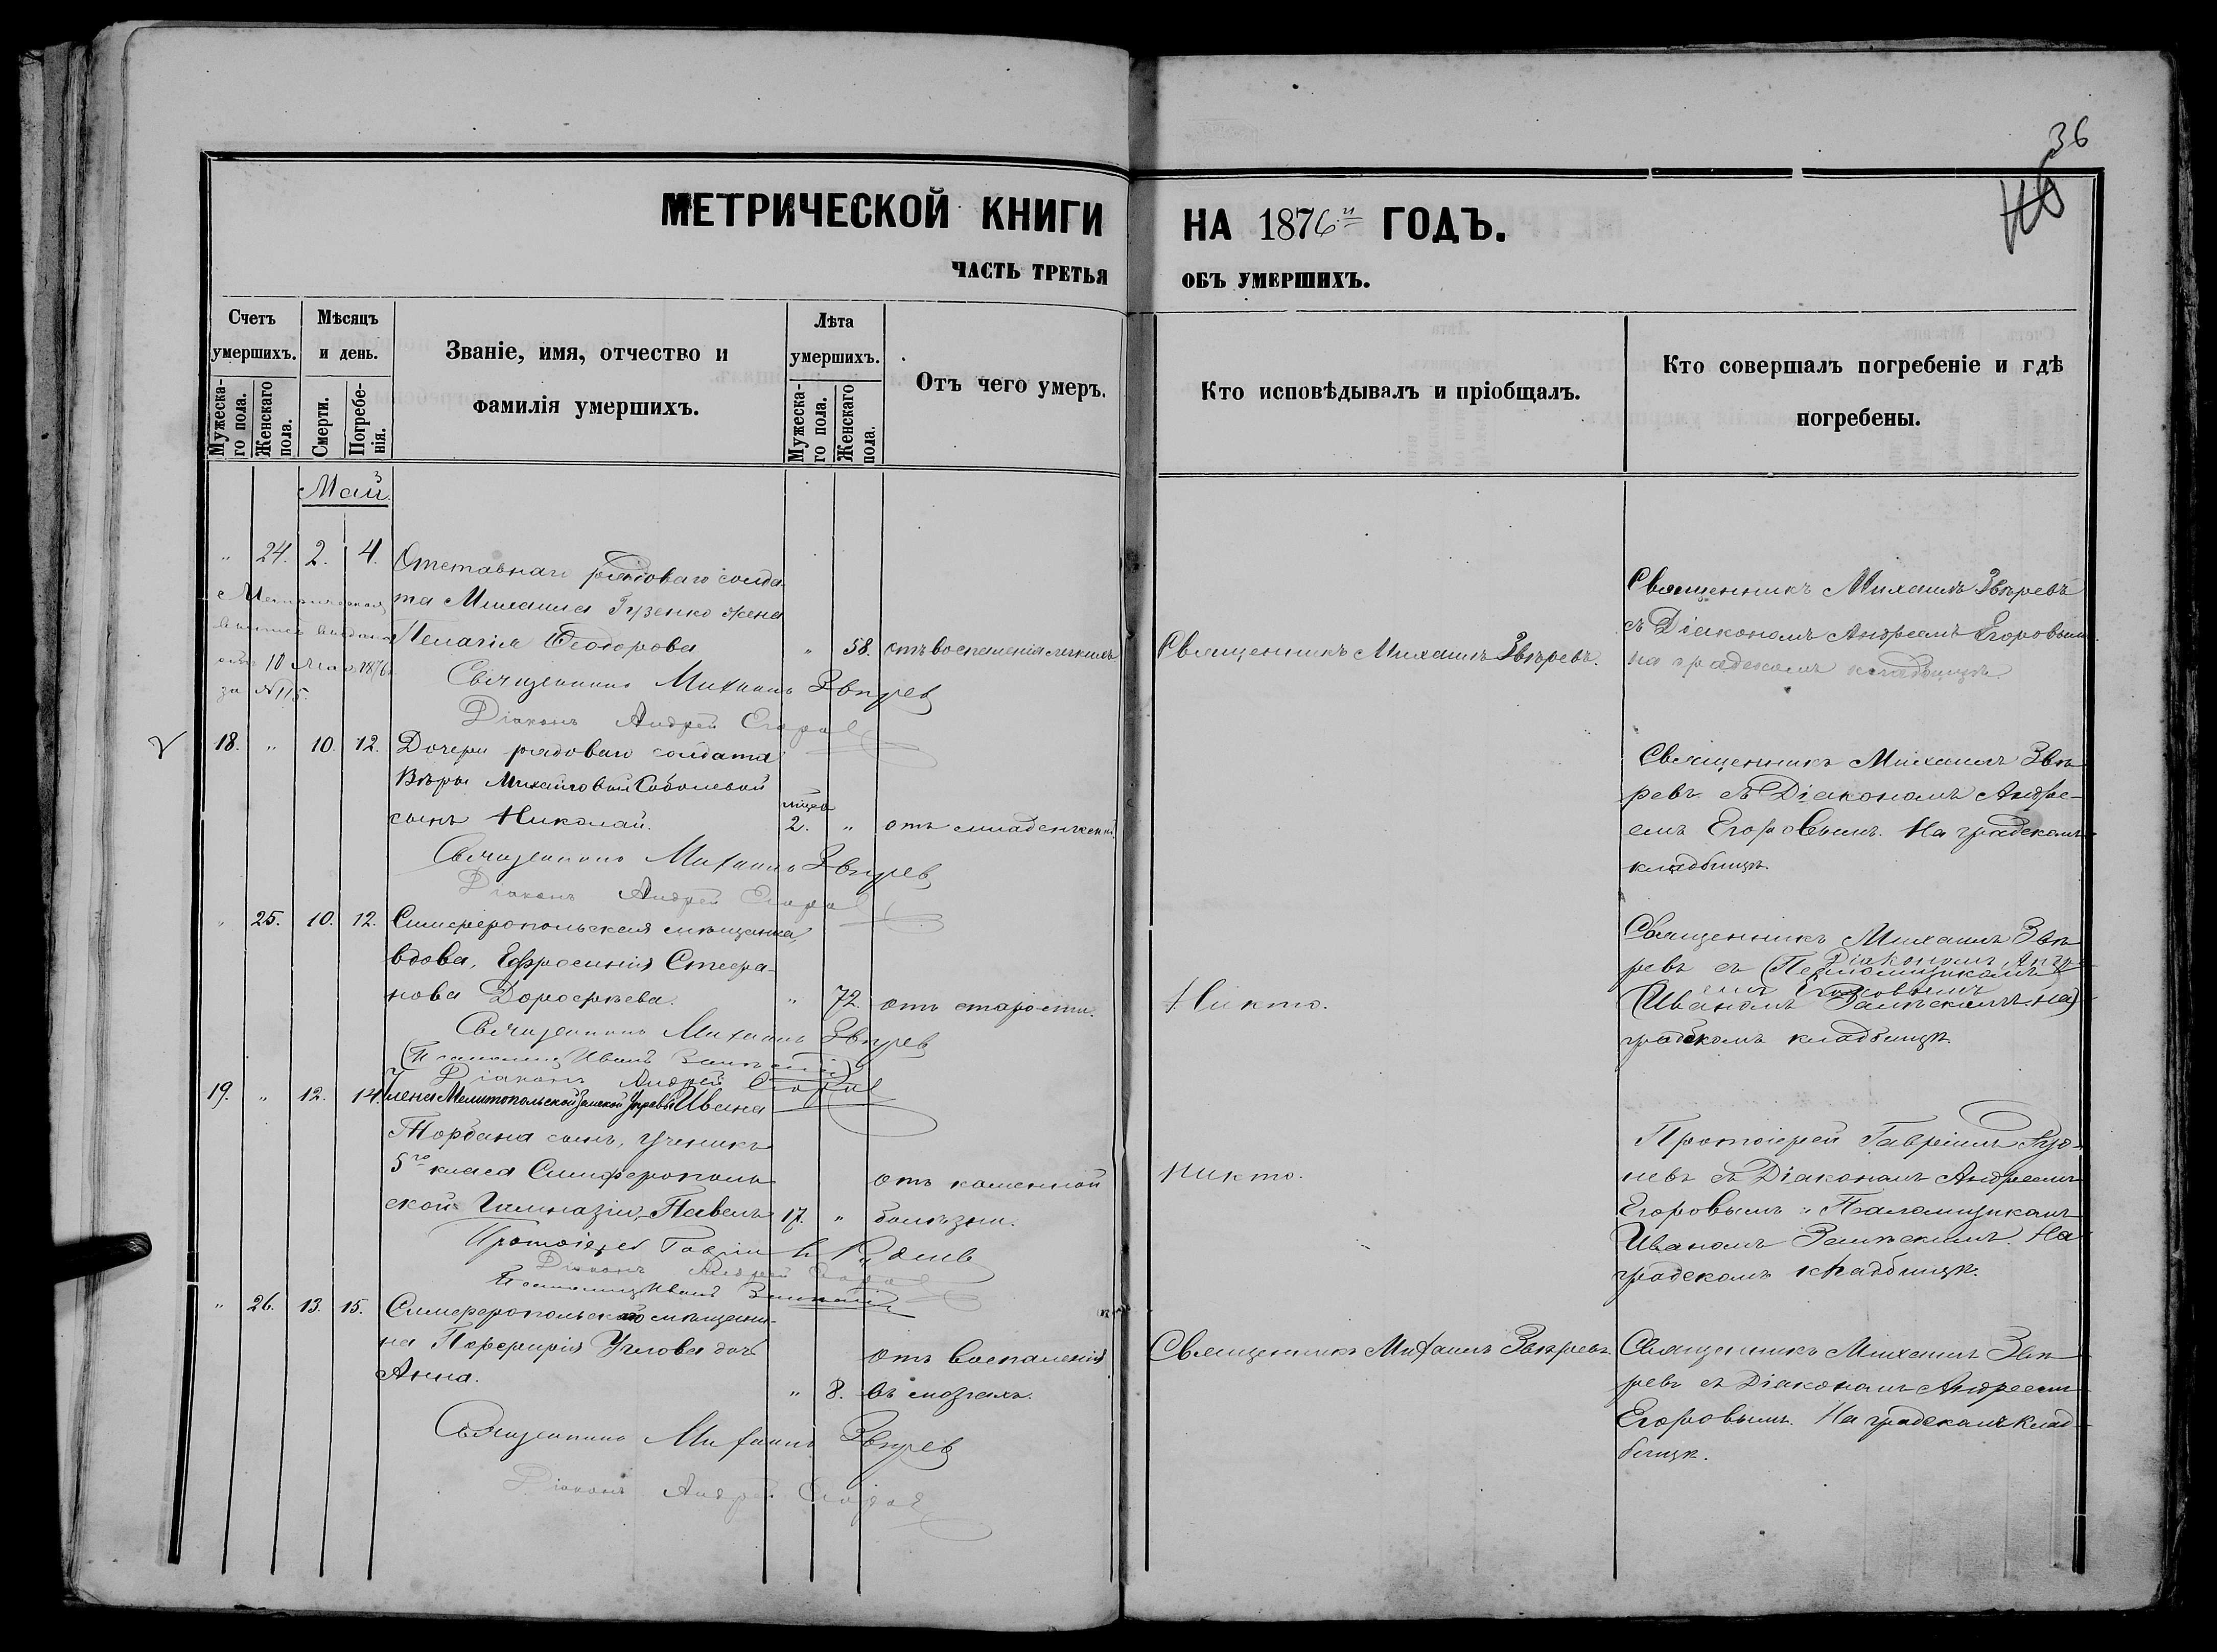 36
МЕТРИЧЕСКОЙ КНИГИ НА 1876й ГОДЪ.
ЧАСТЬ ТРЕТЬЯ ОБЪ УМЕРШИХЪ.
Счетъ умершихъ.
Мужеска-го пола.
Женскаго пола.
Мѣсяцъ и день.
Смерти.
Погребе-нія.
Званіе, имя, отчество и
фамилія умершихъ.
Лѣта умершихъ.
Мужеска-го пола.
Женскаго пола.
Отъ чего умеръ.
Кто исповѣдывалъ и пріобщалъ.
Кто совершалъ погребеніе и гдѣ
погребены.
Май.
" 24. 2. 4. Отставнаго рядоваго солда
та Михаила Гузенко жена
Пелагія Ѳеодорова " 58. отъ воспаленія легкихъ
Священникъ Михаилъ Звѣревъ
Діаконъ Андрей Егоров
Метрическая
выпись выдана
10 Мая 1876
за №115.
Священникъ Михаилъ Звѣревъ.
Священникъ Михаилъ Звѣревъ
съ Діакономъ Андреемъ Егоровым
на градскомъ кладбищѣ
18. " 10. 12. Дочери рядоваго солдата
Вѣры Михайловой Соболевой
сынъ Николай. мѣсяц 2. " отъ младенческ
Священникъ Михаилъ Звѣрев
Діаконъ Андрей Егоров
Священникъ Михаилъ Звѣ
ревъ съ Діакономъ Андре-
емъ Егоровымъ. На градскомъ
кладбищѣ.
" 25. 10. 12. Симферопольская мѣщанка,
вдова, Ефросинія Стефа-
нова Дорофѣева. " 72. отъ старости.
Священникъ Михаилъ Звѣрев
(Псаломщ Иванъ
Діаконъ Андрей Егоров
Никто.
Священникъ Михаилъ Звѣ
ревъ съ (Псаломщикомъ
Діакономъ Андре
емъ Егоровымъ
Иваномъ на)
градскомъ кладбищѣ.
19. " 12. 14. Члена Мелитопольской Земской Управы Ивана
Торбана сынъ, ученикъ
5го класа Симферополь
ской Гимназіи, Павелъ 17. " отъ каменной
болѣзни.
Протоіерей Гавріилъ
Діаконъ Андрей Егоров
Псаломщ Иванъ
никто.
Протоіерей Гавріилъ
невъ съ Діакономъ Андреемъ
Егоровымъ " Псаломщикомъ
Иваномъ На
градскомъ кладбищѣ.
" 26. 13. 15. Симферопольскаго мѣщани-
на Порфирія Углова дочь
Анна. " 8. Отъ воспаленія
въ мозгахъ.
Священникъ Михаилъ Звѣрев
Діаконъ Андрей Егоров
Священникъ Михаилъ Звѣревъ
Священникъ Михаилъ Звѣ
ревъ съ Діакономъ Андреемъ
Егоровымъ. На градскомъ клад
бищѣ.